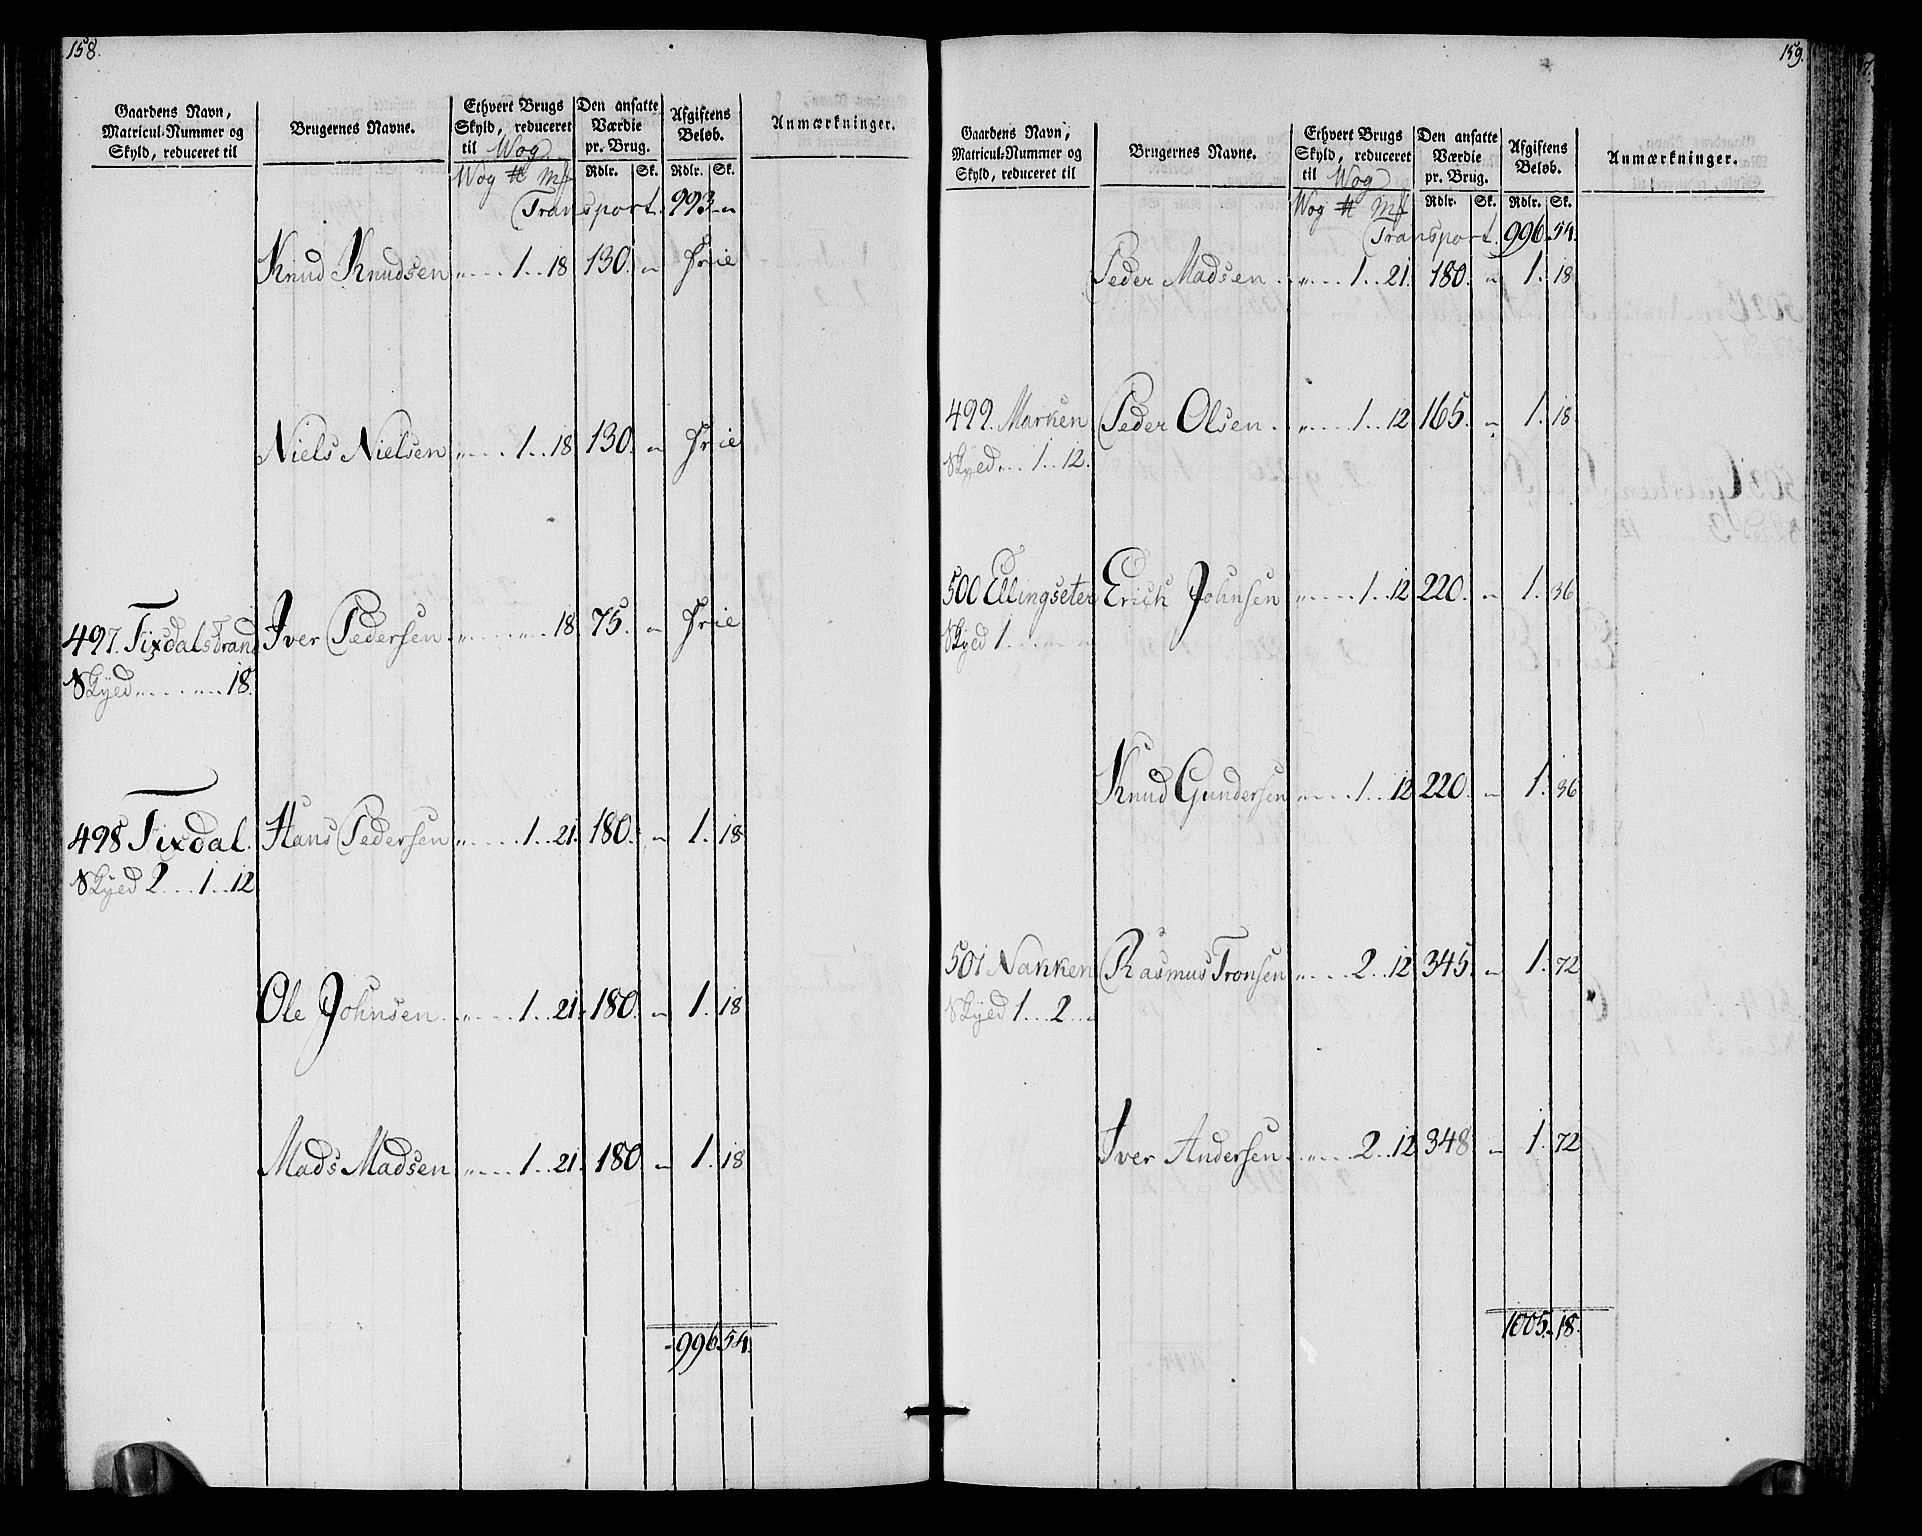 158.
Gaardens Navn, Matricul-Nummer og Skyld, reduceret til
Brugernes Navne.
Ethvert Brugs Skyld, reduceret til Wog
Den ansatte Værdie pr. Brug.
Afgiftens Beløb.
Anmærkninger.
Wog ℔ Mk Rdlr. Sk. Rdlr. Sk.
Transport. 993 „
Knud Knudsen „ 1 18 130. „ Frie
Niels Nielsen „ 1 18 130. „ Frie
497. Tixdalstrand Iver Pedersen „ „ 18 75. „ Frie
Skyed „ „ 18.
498 Tixdal. Hans Pedersen „ 1 21. 180. „ 1. 18
Skyed 2 1 12
Ole Johnsen „ 1 21. 180. „ 1. 18
Mads Madsen „ 1 21. 180 „ 1. 18
996 54.
159.
Gaardens Navn, Matricul-Nummer og Skyld, reduceret til
Brugernes Navne.
Ethvert Brugs Skyld, reduceret til Wog
Den ansatte Værdie pr. Brug.
Afgiftens Beløb.
Anmærkninger.
Wog ℔ Mk Rdlr. Sk. Rdlr. Sk.
Transport. 996. 54.
Peder Madsen „ 1 21. 180. „ 1. 18
499. Marken Peder Olsen „ 1 12 165. „ 1. 18
Skyed „ 1 12.
500 Ellingseter Erich Johnsen „ 1 12 220. „ 1. 36
Skyed 1 „ „
Knud Gundersen „ 1 12 220. „ 1. 36
501 Nakken Rasmus Tronsen „ 2 12 345. „ 1. 72
Skyed 1 2 „
Iver Andersen „ 2 12 348 „ 1. 72
1005. 18.